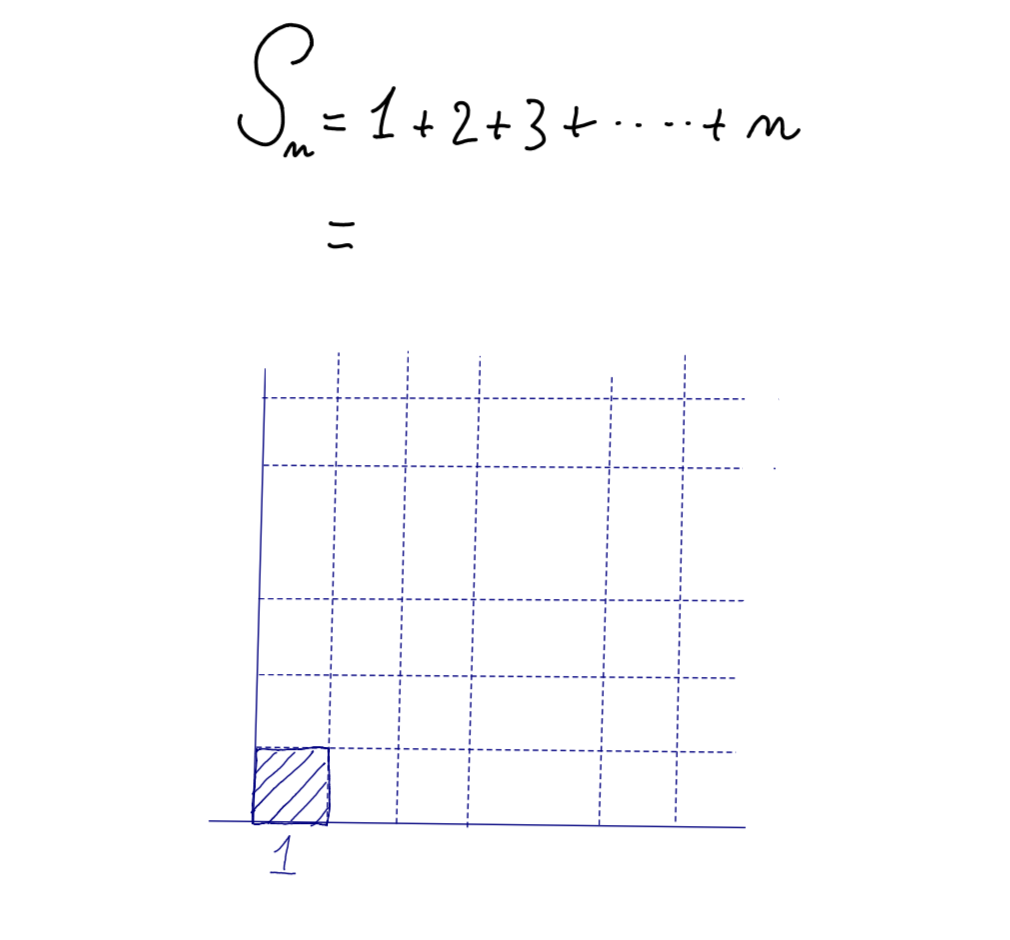 Sn = 1 + 2 + 3 + ..... + n
=
1